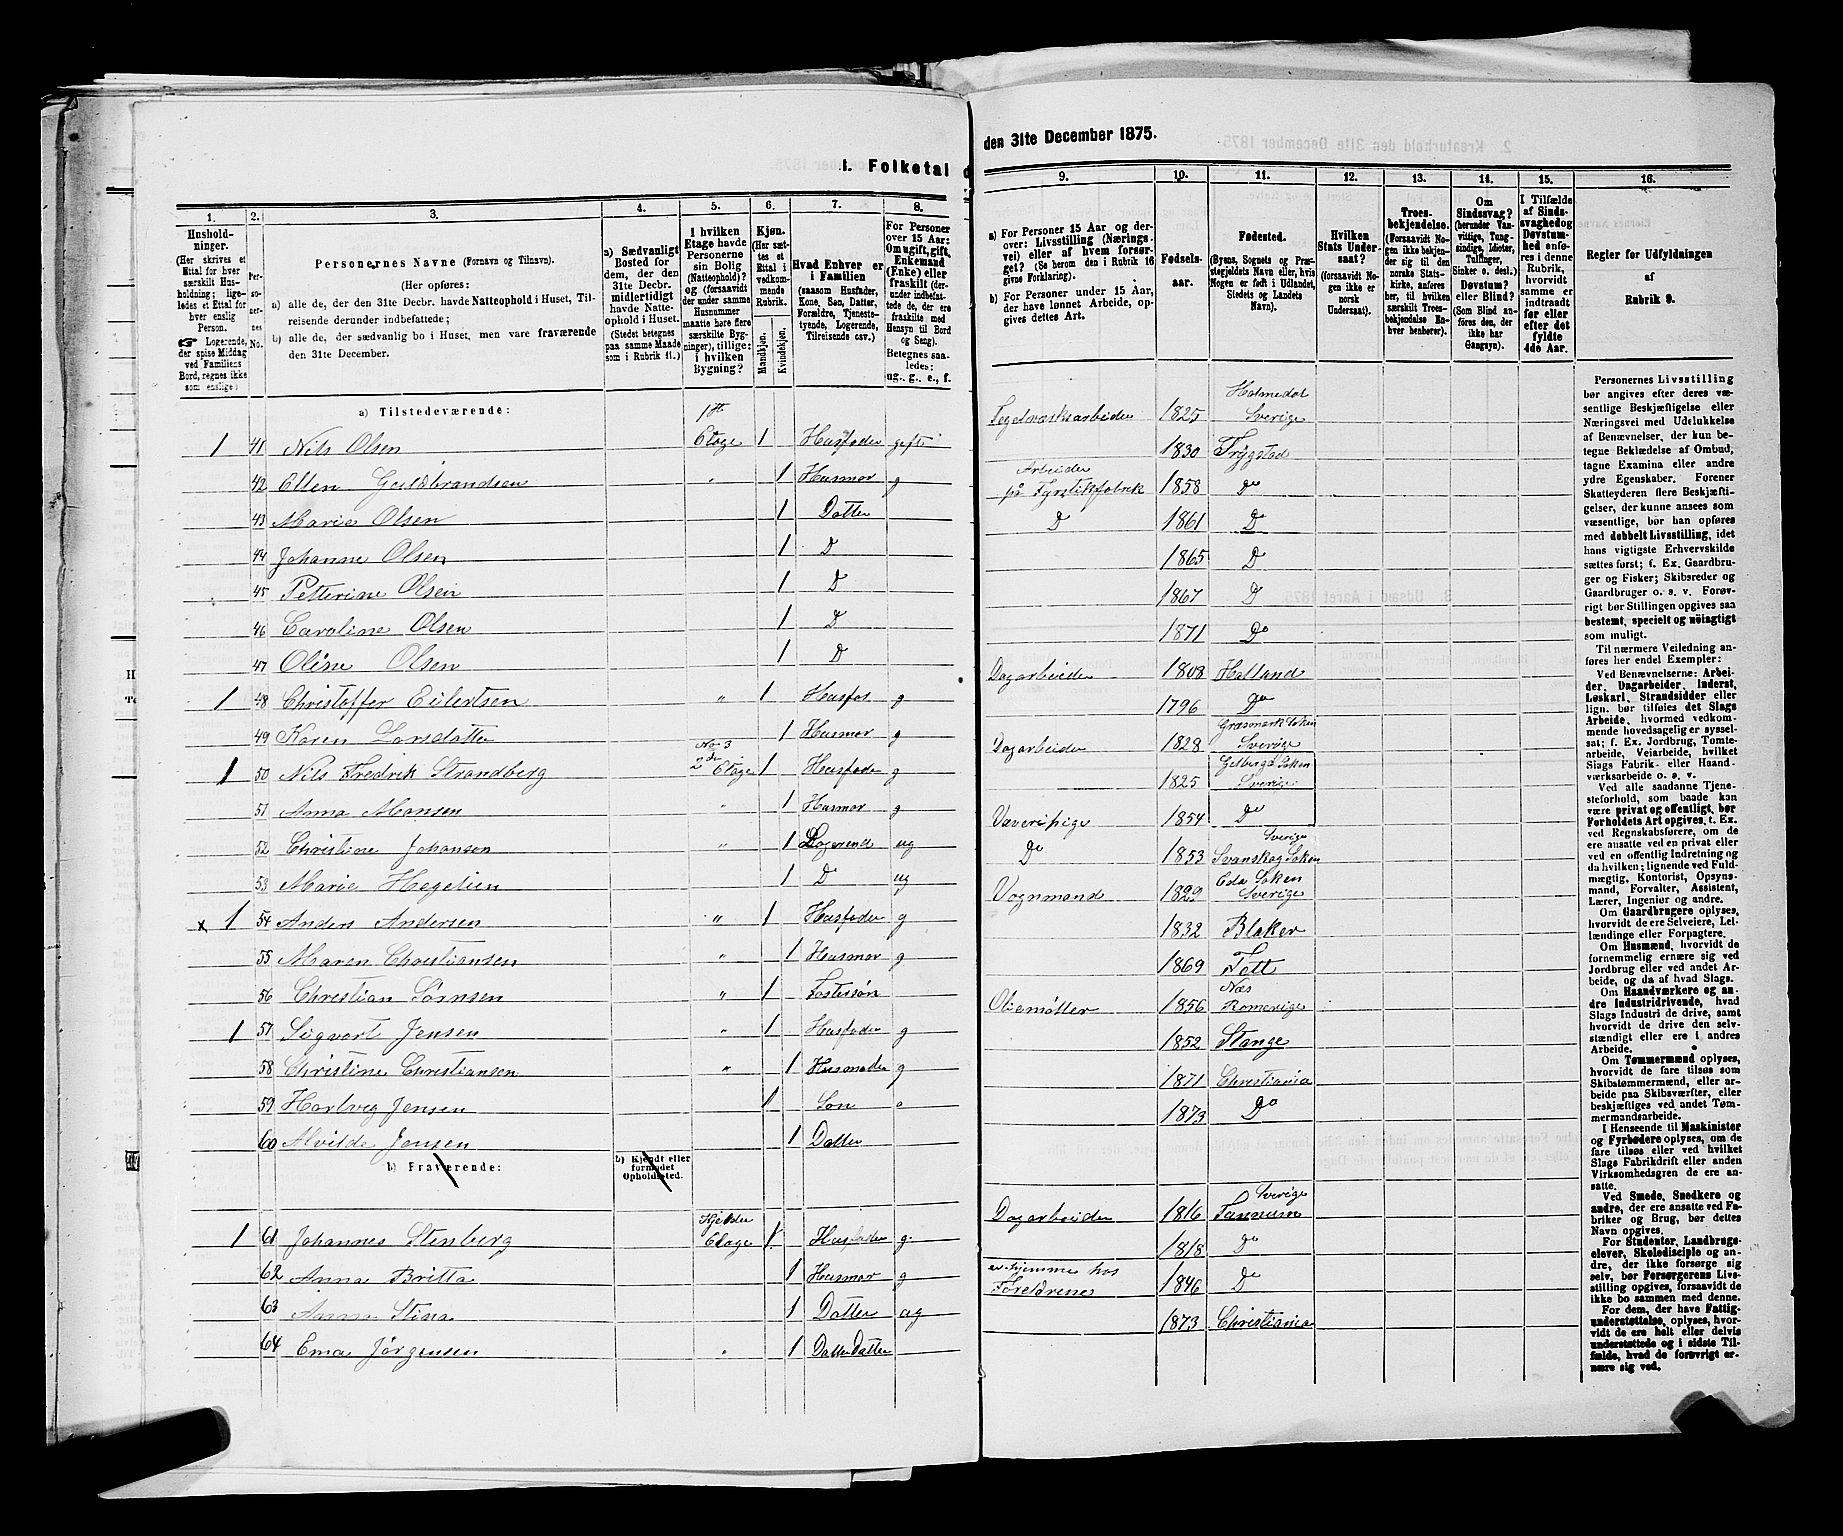 I. Folketal den 31te December 1875.
1. 2. 3. 4. 5. 6. 7. 8. 9. 10. 11. 12. 13. 14. 15. 16.
Husholdninger.
(Her skrives et Ettal for hver særskilt Husholdning; ligeledes et Ettal for hver enslig Person.
☞ Logerende, der spise Middag ved Familiens Bord, regnes ikke som enslige.)
Personernes No.
Personernes Navne (Fornavn og Tilnavn).
(Her opføres:
a) alle de, der den 31te Decbr. havde Natteophold i Huset, Tilreisende derunder indbefattede;
b) alle de, der sædvanlig bo i Huset, men vare fraværende den 31te December.
a) Sædvanligt Bosted for dem, der den 31te Decbr. midlertidigt havde Natteophold i Huset. (Stedet betegnes paa samme Maade som i Rubrik 11.)
I hvilken Etage havde Personerne sin Bolig (Natteophold)? (forsaavidt der under samme Husnummer maatte høre flere særskilte Bygninger), tillige: i hvilken Bygning?
Kjøn.
(Her sættes et Ettal i vedkommende Rubrik.
Mandkjøn. Kvindekjøn.
Hvad Enhver er i Familien
(saasom Husfader, Kone, Søn, Datter, Forældre, Tjenestetyende, Logerende, Tilreisende osv.)
For Personer over 15 Aar: Om ugift, gift, Enkemand (Enke) eller fraskilt (derunder indbefattede de, der ere fraskilte med Hensyn til Bord og Seng). Betegnes saaledes: ug., g., e., f.
a) For Personer 15 Aar og derover: Livsstilling (Næringsvei) eller af hvem forsørget? (Se herom den i Rubrik 16 givne Forklaring).
b) For Personer under 15 Aar, der have lønnet Arbeide, opgives dettes Art.
Fødselsaar.
Fødested.
(Byens, Sognets og Præstegjeldets Navn eller, hvis Nogen er født i Udlandet, Stedets og Landets Navn).
Hvilken Stats Undersaat?
(forsaavidt Nogen ikke er norsk Undersaat).
Troesbekjendelse.
(Forsaavidt Nogen ikke bekjender sig til den norske Statskirke, anføres her, til hvilken særskilt Troesbekjendelse Enhver henhører).
Om Sindssvag? (herunder Vanvittige, Tungsindige, Idioter, Tullinger, Sinker o. desl.) Døvstum? eller Blind? (Som Blind anføres den, der ikke har Gangsyn).
I Tilfælde af Sindssvaghed og Døvstumhed anføres i denne Rubrik, hvorvidt samme er indtraadt før eller efter det fyldte 4de Aar.
Regler for Udfyldningen af Rubrik 9.
a) Tilstedeværende:
1 41 Nils Olsen 1ste Etage 1 Husfader gift Teglværksarbeider 1825 Holmedal Sverige
42 Ellen Guldbrandsen " 1 Husmor g 1830 Trygstad
43 Marie Olsen 1 Datter Arbeider på Fyrstikfabrik 1858 Do
44 Johanne Olsen 1 D D 1861 D
45 Petterine Olsen 1 D 1865 D
46 Caroline Olsen 1 D 1867 D
47 Oline Olsen 1 D 1871 Do
1 48 Christoffer Eilertsen " 1 Husfa. g Dagarbeider 1808 Halland
49 Karen Larsdatter 1 Husmor g 1796 Do
1 50 Nils Fredrik Strandberg No 3 2den Etage 1 Husfader g Dagarbeider 1828 Græsmark Soken Sverige
51 Anna Monsen " 1 Husmor g 1825 Gilberga Soken Sverige
52 Christine Johanson " 1 Logerend ug Væverpige 1854 Do
53 Marie Hegelien 1 D ug Do 1853 Sverige Svanskog Soken
x 1 54 Anders Andersen " 1 Husfader g Vognmand 1829 Eda Soken Sverige
55 Maren Christiansen " 1 Husmor g 1832 Blaker
56 Christian Sørnsen " 1 Fostersøn 1869 Fett
1 57 Sigvart Jensen " 1 Husfader g Oliemøller 1856 Næs Romerige
58 Christine Christiansen " 1 Husmoder g 1852 Stange
59 Hartvig Jensen 1 Søn 1871 Christiania
60 Alvilde Jensen 1 Datter 1873 Do
b) Fraværende:
b) Kjendt eller formodet Opholdssted.
1 61 Johannes Stenberg Kjelder Etage 1 Husfader g. Dagarbeider 1816 Sverige Tannum
62 Anna Britta 1 Husmor g 1818 Do
63 Anna Stina 1 Datter ug er hjemme hos Foreldrenes 1846 Do
64 Ema Jørgensen " 1 Datter Datter 1873 Christiania
Personernes Livsstilling bør angives efter deres væsentlige Beskjæftigelse eller Næringsvei med Udelukkelse af Benævnelser, der kun betegne Beklædelse af Ombud, tagne Examina eller andre ydre Egenskaber. Forener Skatteyderen flere Beskjæftigelser, der kunne ansees som væsentlige, bør han opføres med dobbelt Livsstilling, idet hans vigtigste Erhvervskilde sættes først; f. Ex. Gaardbruger og Fisker; Skibsreder og Gaardbruger o. s. v. Forøvrigt bør Stillingen opgives saa bestemt, specielt og nøiagtigt som muligt.
Til nærmere Veiledning anføres her endel Exempler:
Ved Benævnelserne: Arbeider, Dagarbeider, Inderst, Løskarl, Strandsidder eller lign. bør tilføies det Slags Arbeide, hvormed vedkommende hovedsagelig er sysselsat; f. Ex. Jordbrug, Tomtearbeide, Veiarbeide, hvilket Slags Fabrik- eller Haandværksarbeide o. s. v.
Ved alle saadanne Tjenesteforhold, som baade kan være privat og offentligt, bør Forholdets Art opgives, t. Ex. ved Regnskabsførere, om de ere ansatte ved en privat eller ved en offentlig Indretning og da hvilken; lignende ved Fuldmægtig, Kontorist, Opsynsmand, Forvalter, Assistent, Lærer, Ingeniør og andre.
Om Gaardbrugere oplyses, hvorvidt de ere Selveiere, Leilændinge eller Forpagtere.
Om Husmænd, hvorvidt de fornemmelig ernære sig ved Jordbrug eller ved andet Arbeide, og da af hvad Slags.
Om Haandværkere og andre Industridrivende, hvad Slags Industri de drive, samt hvorvidt de drive den selvstændigt eller ere i andres Arbeide.
Om Tømmermænd oplyses, hvorvidt de fare tilsøs som Skibstømmermænd, eller arbeide paa Skibsværfter, eller beskjæftiges ved andet Tømmermandsarbeide.
I Henseende til Maskinister og Fyrbødere oplyses, om de fare tilsøs eller ved hvilket Slags Fabrikdrift eller anden Virksomhedsgren de ere ansatte.
Ved Smede, Snedkere og andre, der ere ansatte ved Fabriker og Brug, bør dettes Navn opgives.
For Studenter, Landbrugselever, Skoledisciple og andre, der ikke forsørge sig selv, bør Forsørgerens Livsstilling opgives, forsaavidt de ikke bo sammen med denne.
For dem, der have Fattigunderstøttelse, oplyses, hvorvidt de ere helt eller delvis understøttede og i sidste Tilfælde, hvad de forøvrigt ernære sig ved.